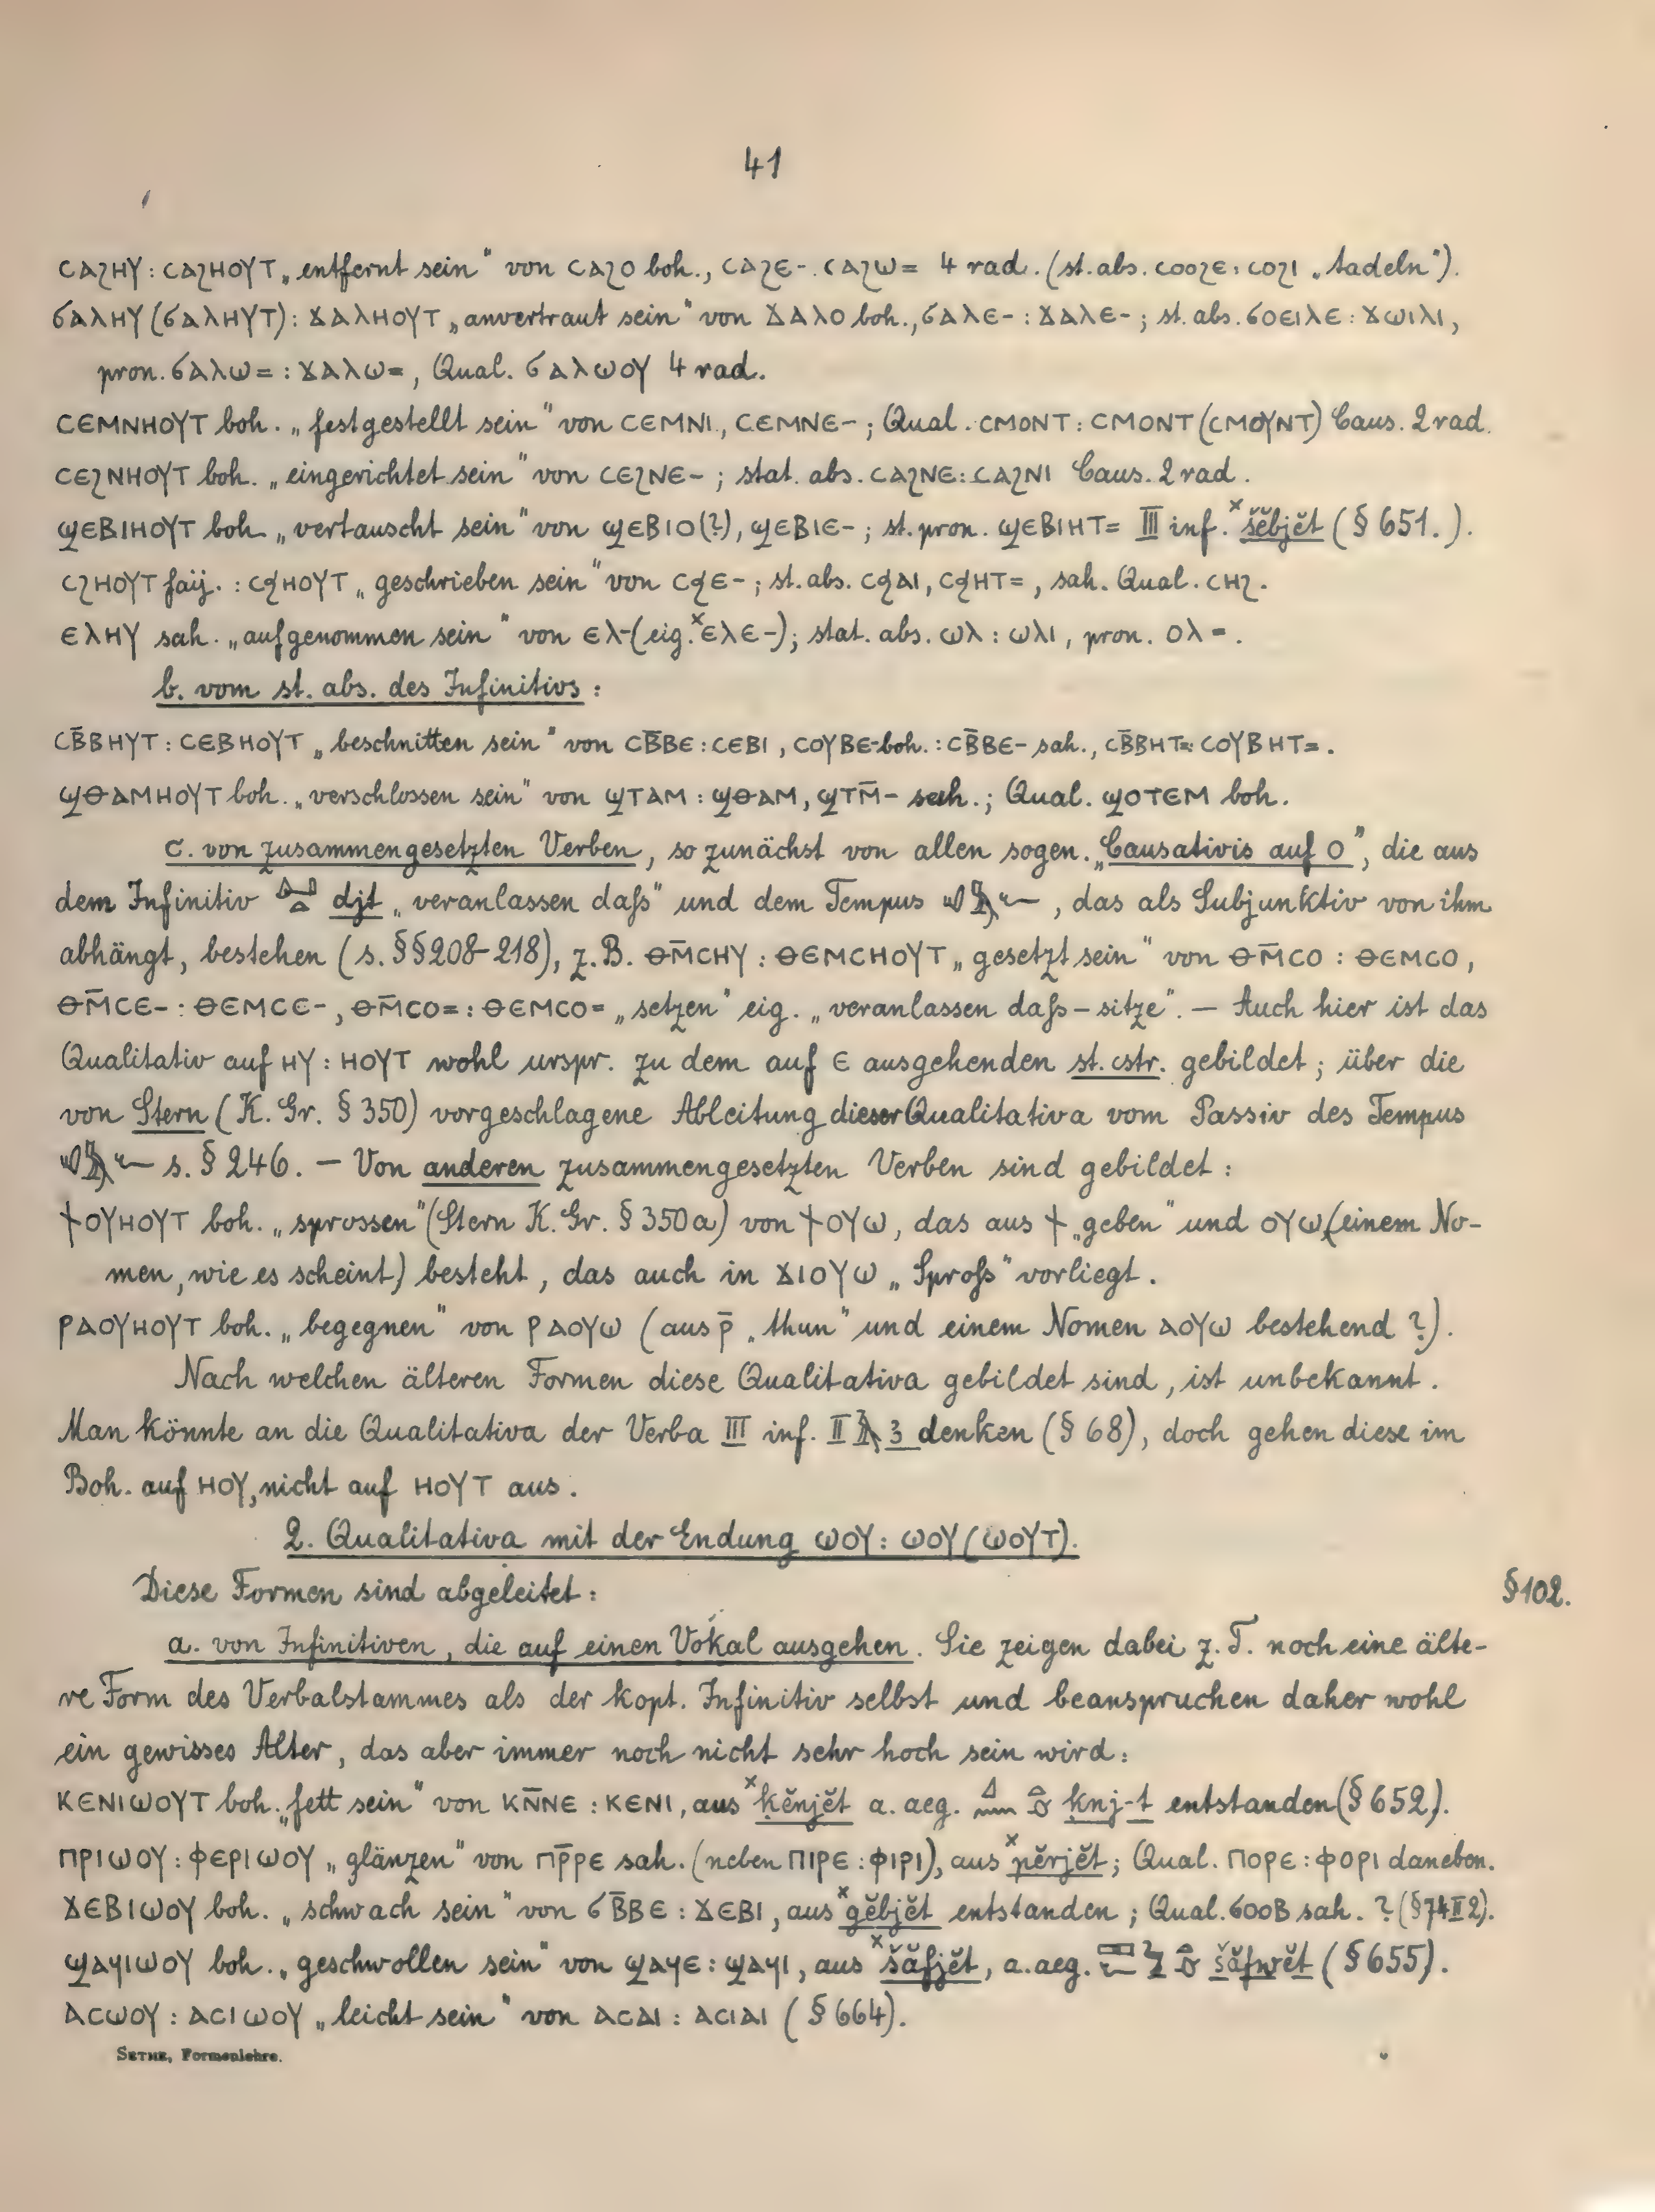 41
ⲥⲁϩⲏⲩ : ⲥⲁϩⲏⲟⲩⲧ „entfernt sein“ von ⲥⲁϩⲟ boh., ⲥⲁϩⲉ-. ⲥⲁϩⲱ= 4 rad. (st. abs. ⲥⲟⲟϩⲉ : ⲥⲟϩⲓ „tadeln“).
ϭⲁⲗⲏⲩ (ϭⲁⲗⲏⲩⲧ) : ϫⲁⲗⲏⲟⲩⲧ „anvertraut sein“ von ϫⲁⲗⲟ boh., ϭⲁⲗⲉ- : ϫⲁⲗⲉ- ; st. abs. ϭⲟⲉⲓⲗⲉ : ϫⲱⲓⲗⲓ,
pron. ϭⲁⲗⲱ= : ϫⲁⲗⲱ=, Qual. ϭⲁⲗⲱⲟⲩ 4 rad.
ⲥⲉⲙⲛⲏⲟⲩⲧ boh. „festgestellt sein“ von ⲥⲉⲙⲛⲓ, ⲥⲉⲙⲛⲉ- ; Qual. ⲥⲙⲟⲛⲧ : ⲥⲙⲟⲛⲧ (ⲥⲙⲟⲩⲛⲧ) Caus. 2 rad.
ⲥⲉϩⲛⲏⲟⲩⲧ boh. „eingerichtet sein“ von ⲥⲉϩⲛⲉ- ; stat. abs. ⲥⲁϩⲛⲉ : ⲥⲁϩⲛⲓ Caus. 2 rad.
ϣⲉⲃⲓⲏⲟⲩⲧ boh. „vertauscht sein“ von ϣⲉⲃⲓⲟ (?), ϣⲉⲃⲓⲉ- ; st. pron. ϣⲉⲃⲓⲏⲧ= III inf. ˣšĕbjĕt (§ 651.).
ⲥϩⲏⲟⲩⲧ faij. : ⲥϧⲏⲟⲩⲧ „geschrieben sein“ von ⲥϧⲉ- ; st. abs. ⲥϧⲁⲓ, ⲥϧⲏⲧ=, sah. Qual. ⲥⲏϩ.
ⲉⲗⲏⲩ sah. „aufgenommen sein“ von ⲉⲗ- (eig. ˣⲉⲗⲉ-) ; stat. abs. ⲱⲗ : ⲱⲗⲓ, pron. ⲟⲗ=.
b. vom st. abs. des Infinitivs :
ⲥⲃ̄ⲃⲏⲩⲧ : ⲥⲉⲃⲏⲟⲩⲧ „beschnitten sein“ von ⲥⲃ̄ⲃⲉ : ⲥⲉⲃⲓ, ⲥⲟⲩⲃⲉ- boh. : ⲥⲃ̄ⲃⲉ- sah., ⲥⲃ̄ⲃⲏⲧ= : ⲥⲟⲩⲃⲏⲧ=.
ϣⲑⲁⲙⲏⲟⲩⲧ boh. „verschlossen sein“ von ϣⲧⲁⲙ : ϣⲑⲁⲙ, ϣⲧⲙ̄- sah. ; Qual. ϣⲟⲧⲉⲙ boh.
c. von zusammengesetzten Verben, so zunächst von allen sogen. „Causativis auf ⲟ“, die aus
dem Infinitiv djt „veranlassen daß“ und dem Tempus , das als Subjunktiv von ihm
abhängt, bestehen (s. §§ 208-218), z. B. ⲑⲙ̄ⲥⲏⲩ : ⲑⲉⲙⲥⲏⲟⲩⲧ „gesetzt sein“ von ⲑⲙ̄ⲥⲟ : ⲑⲉⲙⲥⲟ,
ⲑⲙ̄ⲥⲉ- : ⲑⲉⲙⲥⲉ-, ⲑⲙ̄ⲥⲟ= : ⲑⲉⲙⲥⲟ= „setzen“ eig. „veranlassen daß – sitze“. – Auch hier ist das
Qualitativ auf ⲏⲩ : ⲏⲟⲩⲧ wohl urspr. zu dem auf ⲉ ausgehenden st. cstr. gebildet ; über die
von Stern (K. Gr. § 350) vorgeschlagene Ableitung dieser Qualitativa vom Passiv des Tempus
s. § 246. – Von anderen zusammengesetzten Verben sind gebildet :
ϯⲟⲩⲏⲟⲩⲧ boh. „sprossen“ (Stern K. Gr. § 350a) von ϯⲟⲩⲱ, das aus ϯ „geben“ und ⲟⲩⲱ (einem No-
men, wie es scheint) besteht, das auch in ϫⲓⲟⲩⲱ „Sproß“ vorliegt.
ⲣⲁⲟⲩⲏⲟⲩⲧ boh. „begegnen“ von ⲣⲁⲟⲩⲱ (aus ⲣ̄ „thun“ und einem Nomen ⲁⲟⲩⲱ bestehend ?).
Nach welchen älteren Formen diese Qualitativa gebildet sind, ist unbekannt.
Man könnte an die Qualitativa der Verba III inf. II 3 denken (§ 68), doch gehen diese im
Boh. auf ⲏⲟⲩ, nicht auf ⲏⲟⲩⲧ aus.
2. Qualitativa mit der Endung ⲱⲟⲩ : ⲱⲟⲩ (ⲱⲟⲩⲧ).
Diese Formen sind abgeleitet :
§ 102.
a. von Infinitiven, die auf einen Vokal ausgehen. Sie zeigen dabei z. T. noch eine älte-
re Form des Verbalstammes als der kopt. Infinitiv selbst und beanspruchen daher wohl
ein gewisses Alter, das aber immer noch nicht sehr hoch sein wird :
ⲕⲉⲛⲓⲱⲟⲩⲧ boh. „fett sein“ von ⲕⲛ̄ⲛⲉ : ⲕⲉⲛⲓ, aus ˣḳĕnjĕt a. aeg. ḳnj-t entstanden (§ 652).
ⲡⲣⲓⲱⲟⲩ : ⲫⲉⲣⲓⲱⲟⲩ „glänzen“ von ⲡⲣ̄ⲣⲉ sah. (neben ⲡⲓⲣⲉ : ⲫⲓⲣⲓ), aus ˣpĕrjĕt ; Qual. ⲡⲟⲣⲉ : ⲫⲟⲣⲓ daneben.
ϫⲉⲃⲓⲱⲟⲩ boh. „schwach sein“ von ϭⲃ̄ⲃⲉ : ϫⲉⲃⲓ, aus ˣgĕbjĕt entstanden ; Qual. ϭⲟⲟⲃ sah. ? (§ 74 II 2).
ϣⲁϥⲓⲱⲟⲩ boh. „geschwollen sein“ von ϣⲁϥⲉ : ϣⲁϥⲓ, aus ˣšăfjĕt, a. aeg. šăfwĕt (§ 655).
ⲁⲥⲱⲟⲩ : ⲁⲥⲓⲱⲟⲩ „leicht sein“ von ⲁⲥⲁⲓ : ⲁⲥⲓⲁⲓ (§ 664).
SETHE, Formenlehre.